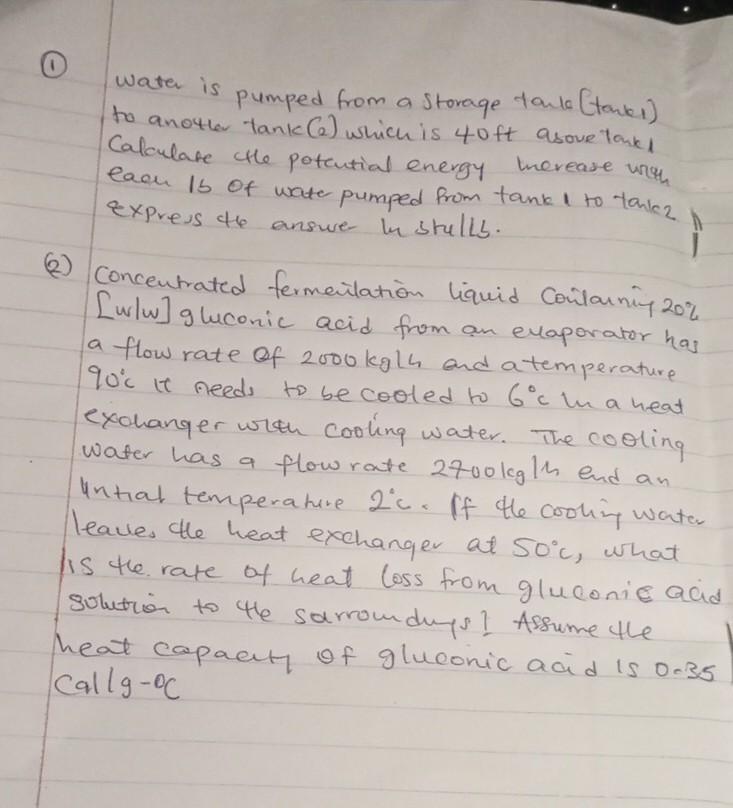 ① Water is pumped from a storage tank (tank 1)
to another tank (2) which is 40ft above tank 1
Calculate the potential energy increase with
each lb of water pumped from tank 1 to tank 2
express the answer in btu/lb.
(2) Concentrated fermentation liquid containing 20%
[w/w] gluconic acid from an evaporator has
a flow rate of 2000kg/h and a temperature
90°c it needs to be cooled to 6°c in a heat
exchanger with cooling water. The cooling
water has a flow rate 2700kg/h and an
initial temperature 2°c. If the cooling water
leaves the heat exchanger at 50°c, what
is the rate of heat loss from gluconic acid
solution to the surroundings? Assume the
heat capacity of gluconic acid is 0.35
Cal/g-°C